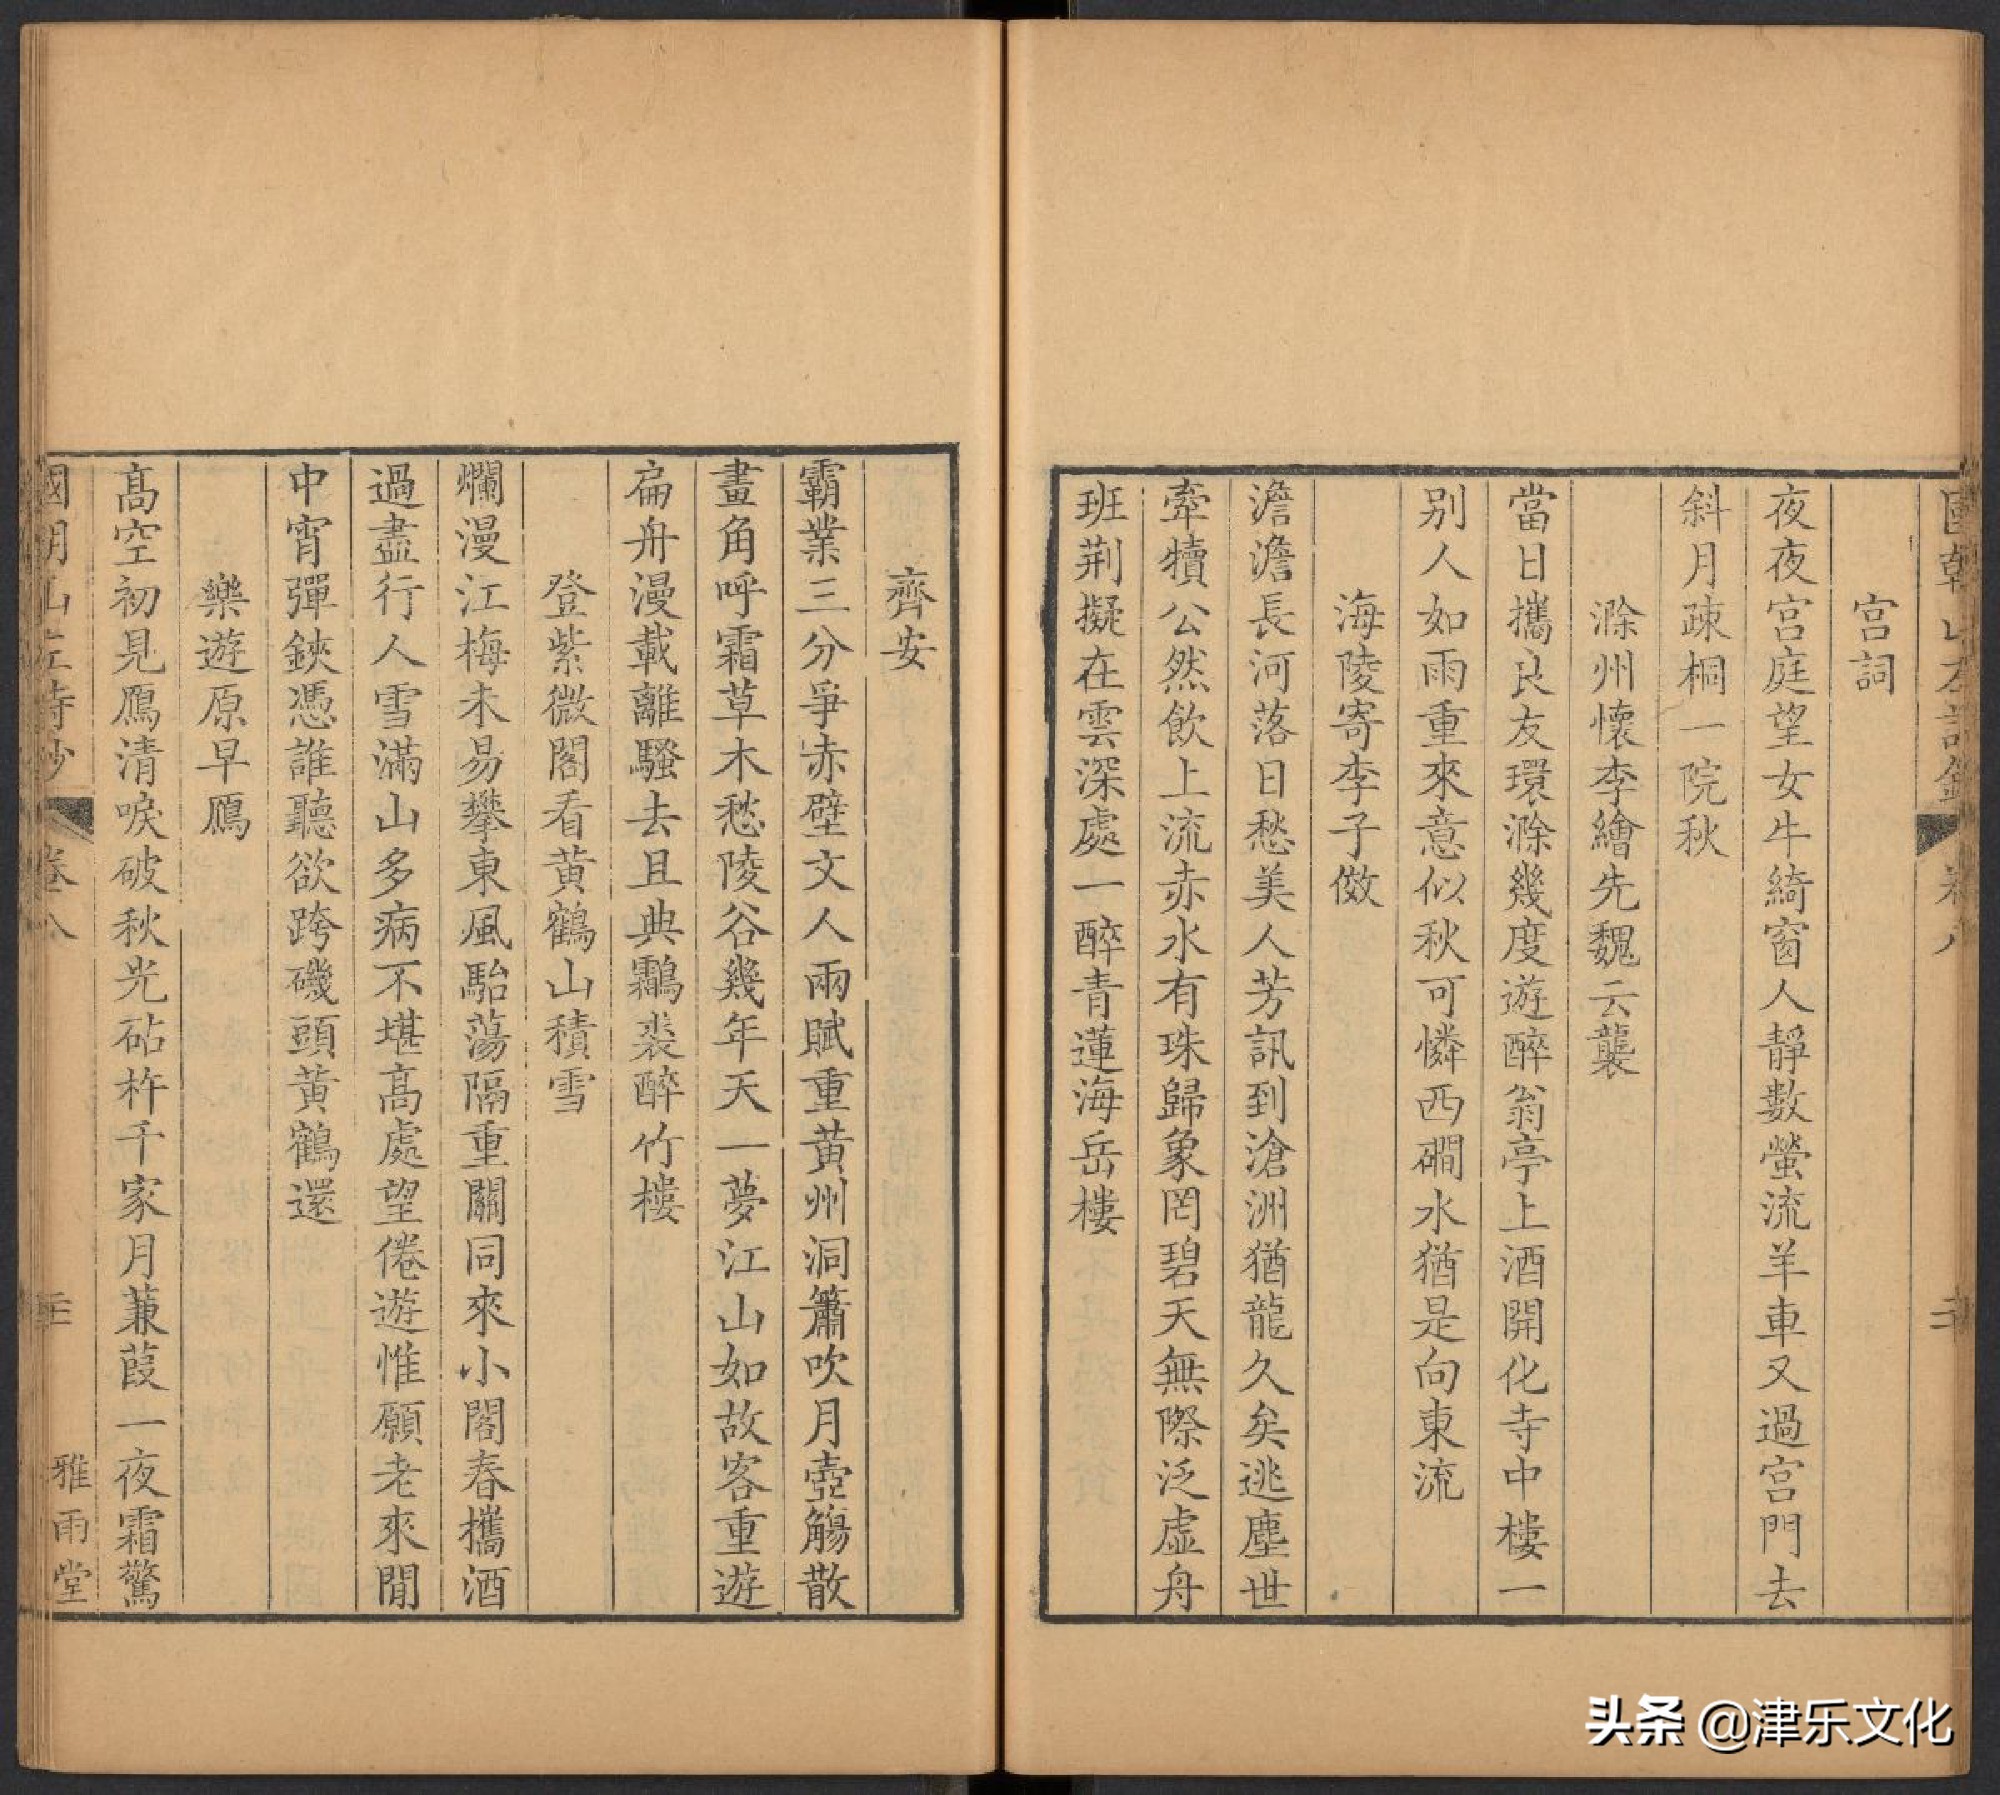 國朝山左詩鈔 卷八 二十
宫詞
夜夜宫庭望女牛綺窗人靜數螢流羊車又過宫門去
斜月疎桐一院秋
滁州懷李繪先魏云襲
當日攜良友環滁幾度遊醉翁亭上酒開化寺中樓一
别人如雨重來意似秋可憐西磵水猶是向東流
海陵寄李子儌
澹澹長河落日愁美人芳訊到滄洲猶龍久矣逃塵世
牽犢公然飲上流赤水有珠歸象罔碧天無際泛虚舟
班荆擬在雲深處一醉青蓮海岳樓
齊安
霸業三分爭赤壁文人兩賦重黄州洞簫吹月壺觴散
畫角呼霜草木愁陵谷幾年天一夢江山如故客重遊
扁舟漫載離騷去且典鸘裘醉竹樓
登紫微閣看黄鶴山積雪
爛漫江梅未易攀東風駘蕩隔重關同來小閣春攜酒
過盡行人雪滿山多病不堪高處望倦遊惟願老來閒
中宵彈鋏憑誰聽欲跨磯頭黄鶴還
樂遊原早鴈
髙空初見鴈清唳破秋光砧杵千家月蒹葭一夜霜驚
國朝山左詩鈔 卷八 雅雨堂
头条 @津乐文化